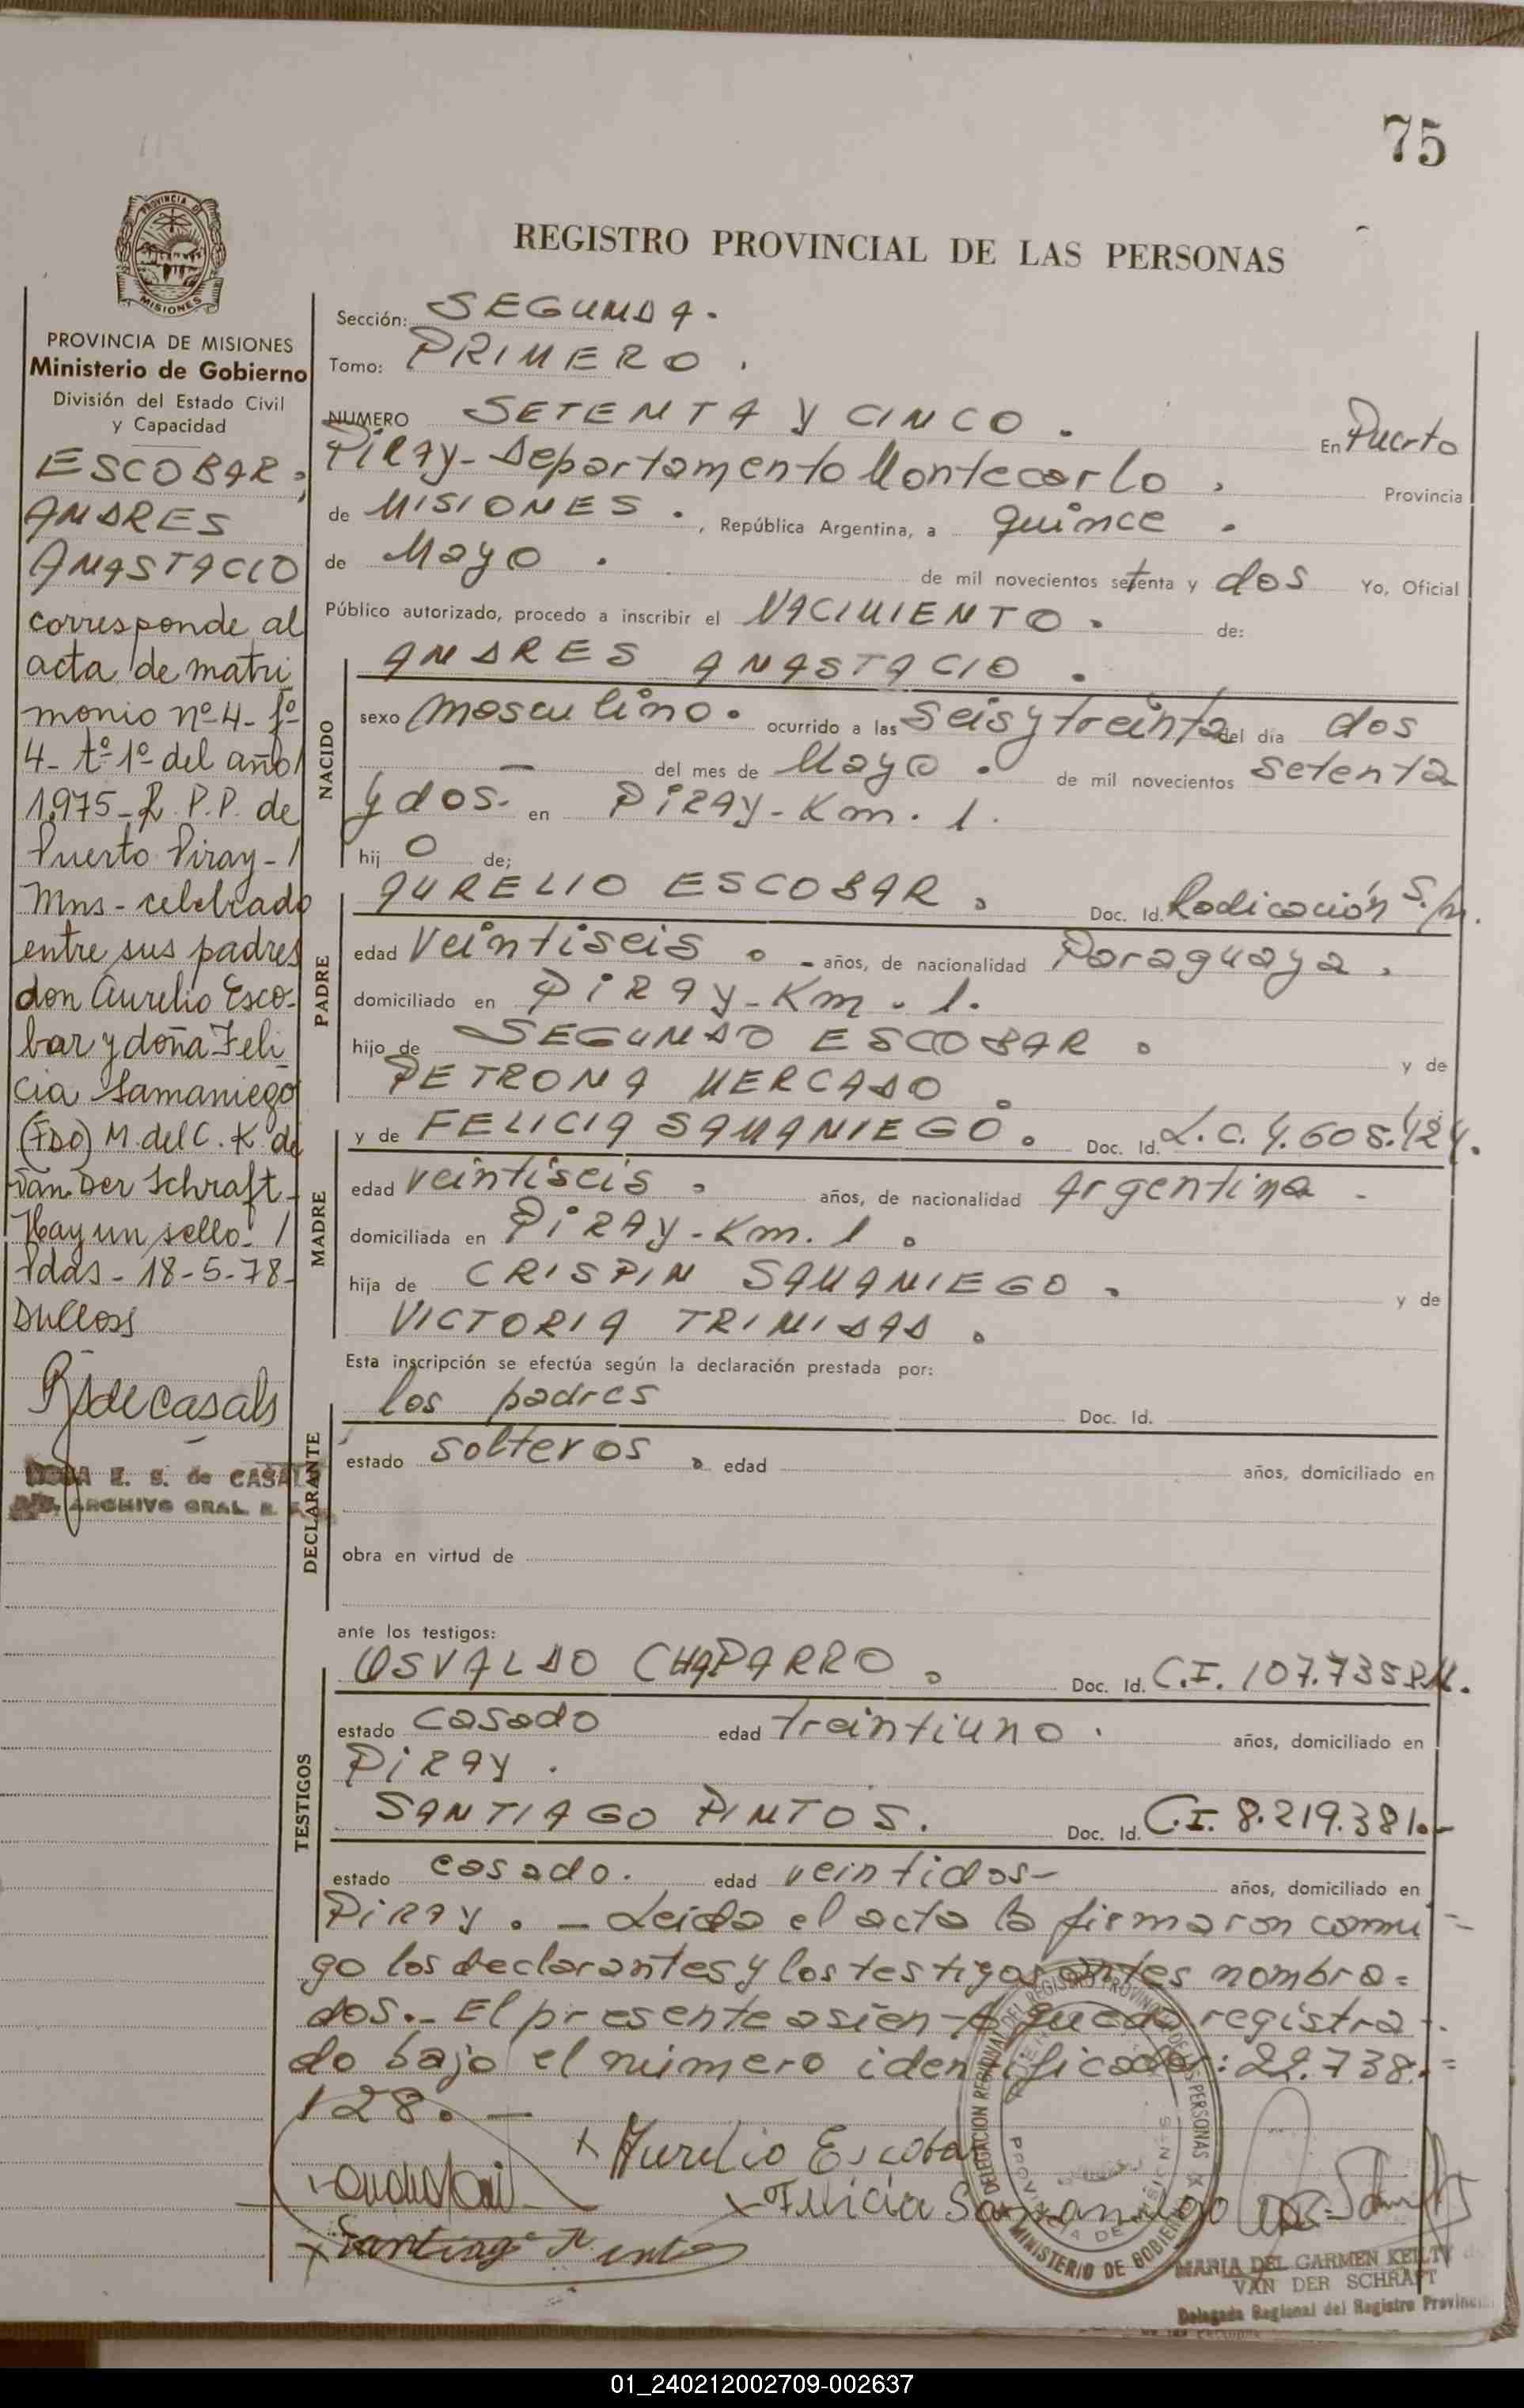 75
PROVINCIA DE
MISIONES
REGISTRO PROVINCIAL DE LAS PERSONAS
PROVINCIA DE MISIONES
Ministerio de Gobierno
División del Estado Civil
y Capacidad
ESCOBAR,
ANDRES
ANASTACIO
corresponde al
acta de matri
monio nº 4- fº
4- tº 1º del año/
1.975- R. P.P. de
Puerto Piray-/
Mns- celebrado
entre sus padres
don Aurelio Esco-
bar y doña Feli
cia Samaniego
(FDO) M. del C. K. de
Van Der Schraft-
Hay un sello-/
Pdas- 18-5-78-
E. S. de CASALS
ARCHIVO GRAL. R.
Sección: SEGUNDA.
Tomo: PRIMERO.
NUMERO SETENTA Y CINCO. En Puerto
Piray- Departamento Montecarlo, Provincia
de MISIONES., República Argentina, a quince.
de Mayo. de mil novecientos setenta y dos Yo, Oficial
Público autorizado, procedo a inscribir el NACIMIENTO. de:
ANDRES ANASTACIO.
NACIDO
sexo masculino. ocurrido a las seis y treinta del día dos
— del mes de Mayo. de mil novecientos setenta
y dos. en PIRAY-Km. 1.
hij o de;
AURELIO ESCOBAR. Doc. Id. Radicación S./n.
PADRE
edad veintiseis. - años, de nacionalidad Paraguaya.
domiciliado en PIRAY-Km. 1.
hijo de SEGUNDO ESCOBAR. y de
PETRONA MERCADO.
y de FELICIA SAMANIEGO. Doc. Id. L.C. 4.605.424.
MADRE
edad veintiseis. años, de nacionalidad Argentina -
domiciliada en PIRAY-Km. 1.
hija de CRISPIN SAMANIEGO. y de
VICTORIA TRINIDAD.
Esta inscripción se efectúa según la declaración prestada por:
los padres Doc. Id.
DECLARANTE
estado solteros. edad años, domiciliado en
obra en virtud de
ante los testigos:
OSVALDO CHAPARRO. Doc. Id. C.I. 107.735
TESTIGOS
estado casado edad treintiuno. años, domiciliado en
PIRAY.
SANTIAGO PINTOS. Doc. Id. C.I. 8.219.381.-
estado casado. edad veintidos- años, domiciliado en
PIRAY. - Leida el acta la firmaron conmi =
go los declarantes y los testigos antes nombra=
dos.- El presente asiento queda registra-.
do bajo el número identificador: 22.738. =
128. —
x Aurelio Escobar
x Felicia Samaniego
x Santiago Pintos
DELEGACION REGIONAL DEL REGISTRO PROVINCIAL DE LAS PERSONAS
MINISTERIO DE GOBIERNO
PROVINCIA DE MISIONES
MARIA DEL CARMEN KEILTY de
VAN DER SCHRAFT
Delegada Regional del Registro Provincial
de las Personas
01_240212002709-002637